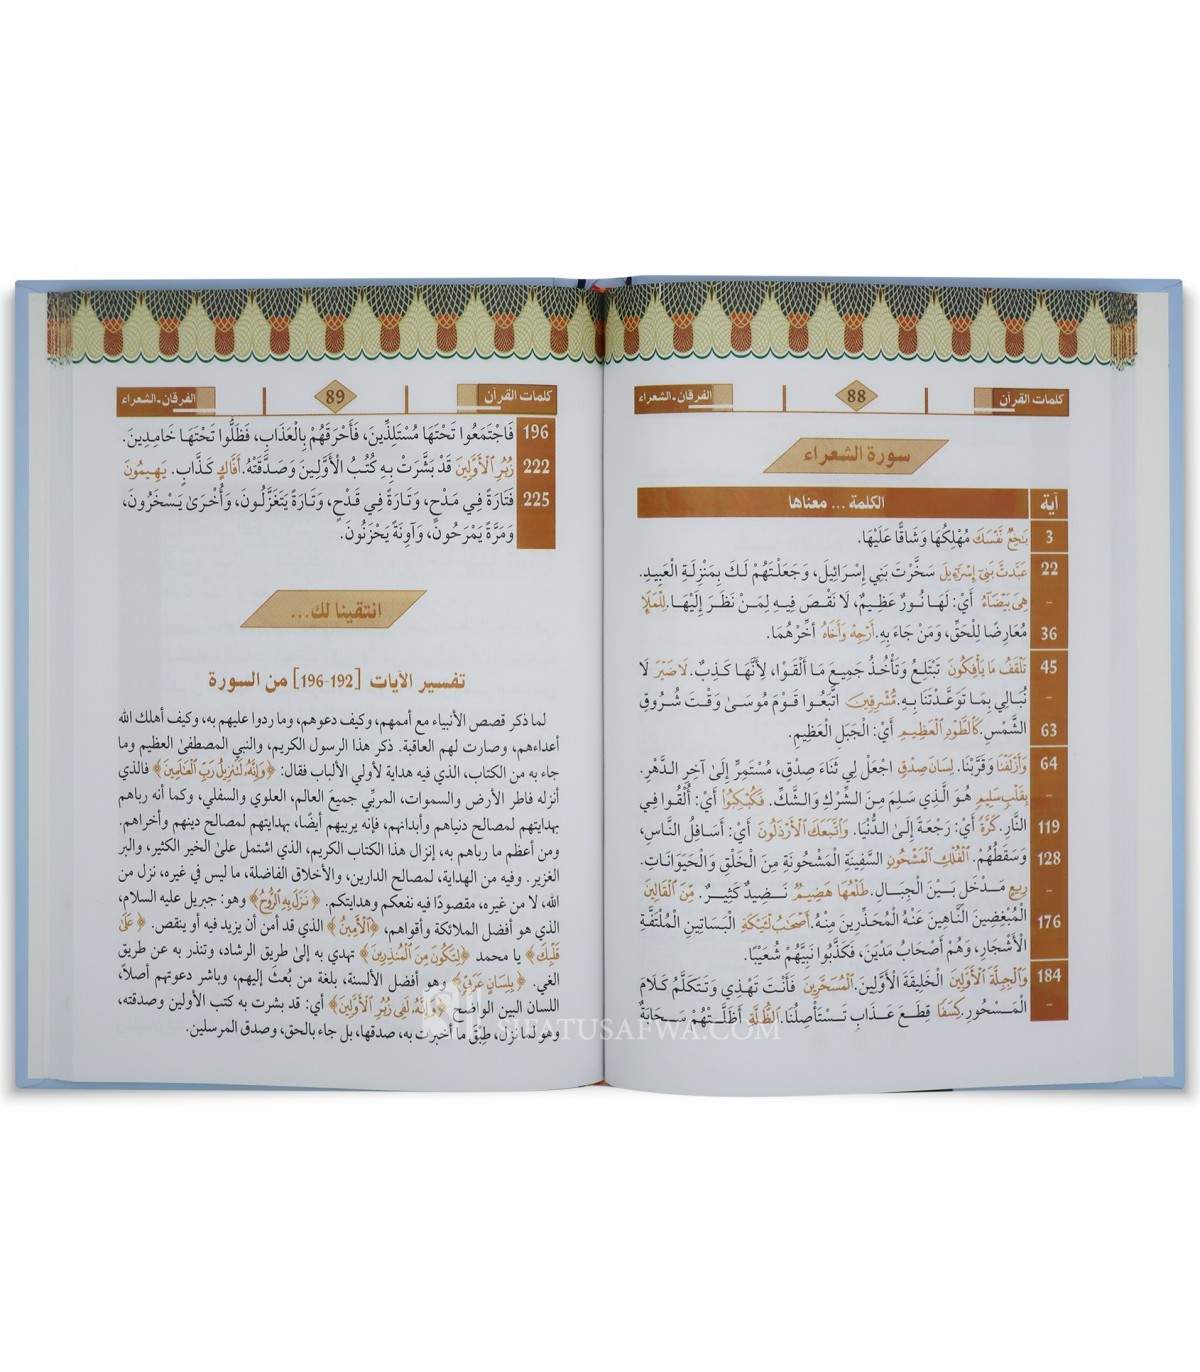 كلمات القرآن
88
الفرقان-الشعراء
سورة الشعراء
آية
الكلمة ... معناها
3 بَٰخِعٞ نَّفۡسَكَ مُهْلِكُهَا وَشَاقًّا عَلَيْهَا.
22 عَبَّدتَّ بَنِيٓ إِسۡرَٰٓءِيلَ سَخَّرْتَ بَنِي إِسْرَائِيلَ، وَجَعَلْتَهُمْ لَكَ بِمَنْزِلَةِ الْعَبِيدِ.
- هِيَ بَيۡضَآءُ أَيْ: لَهَا نُورٌ عَظِيمٌ، لَا نَقْصَ فِيهِ لِمَنْ نَظَرَ إِلَيْهَا. لِلۡمَلَإِ
36 مُعَارِضًا لِلْحَقِّ، وَمَنْ جَاءَ بِهِ. أَرۡجِهۡ وَأَخَاهُ أَخِّرْهُمَا.
45 تَلۡقَفُ مَا يَأۡفِكُونَ تَبْتَلِعُ وَتَأْخُذُ جَمِيعَ مَا أَلْقَوْا، لِأَنَّهَا كَذِبٌ. لَا ضَيۡرَ لَا
- نُبَالِي بِمَا تَوَعَّدْتَنَا بِهِ. مُّشۡرِقِينَ اتَّبَعُوا قَوْمَ مُوسَىٰ وَقْتَ شُرُوقِ
63 الشَّمْسِ. كَٱلطَّوۡدِ ٱلۡعَظِيمِ أَيْ: الْجَبَلِ الْعَظِيمِ.
64 وَأَزۡلَفۡنَا وَقَرَّبْنَا. لِسَانَ صِدۡقٖ اجْعَلْ لِي ثَنَاءَ صِدْقٍ، مُسْتَمِرٍّ إِلَىٰ آخِرِ الدَّهْرِ.
- بِقَلۡبٖ سَلِيمٖ هُوَ الَّذِي سَلِمَ مِنَ الشِّرْكِ وَالشَّكِّ. فَكُبۡكِبُواْ أَيْ: أُلْقُوا فِي
119 النَّارِ. كَرَّةٗ أَيْ: رَجْعَةً إِلَىٰ الدُّنْيَا. وَٱتَّبَعَكَ ٱلۡأَرۡذَلُونَ أَيْ: أَسَافِلُ النَّاسِ،
128 وَسَقَطُهُمْ. ٱلۡفُلۡكِ ٱلۡمَشۡحُونِ السَّفِينَةِ الْمَشْحُونَةِ مِنَ الْخَلْقِ وَالْحَيَوَانَاتِ.
- رِيعٍ مَدْخَلٍ بَيْنَ الْجِبَالِ. طَلۡعُهَا هَضِيمٞ نَضِيدٌ كَثِيرٌ. مِّنَ ٱلۡقَالِينَ
176 الْمُبْغِضِينَ النَّاهِينَ عَنْهُ الْمُحَذِّرِينَ مِنْهُ. أَصۡحَٰبُ لۡـَٔيۡكَةِ الْبَسَاتِينِ الْمُلْتَفَّةِ
الْأَشْجَارِ، وَهُمْ أَصْحَابُ مَدْيَنَ، فَكَذَّبُوا نَبِيَّهُمْ شُعَيْبًا.
184 وَٱلۡجِبِلَّةَ ٱلۡأَوَّلِينَ الْخَلِيقَةَ الْأَوَّلِينَ. ٱلۡمُسَحَّرِينَ فَأَنْتَ تَهْذِي وَتَتَكَلَّمُ كَلَامَ
- الْمَسْحُورِ. كِسَفٗا قِطَعَ عَذَابٍ تَسْتَأْصِلُنَا. ٱلظُّلَّةِ أَظَلَّتْهُمْ سَحَابَةٌ
كلمات القرآن
89
الفرقان-الشعراء
196 فَاجْتَمَعُوا تَحْتَهَا مُسْتَلِذِّينَ، فَأَحْرَقَهُمْ بِالْعَذَابِ، فَظَلُّوا تَحْتَهَا خَامِدِينَ.
222 زُبُرِ ٱلۡأَوَّلِينَ قَدْ بَشَّرَتْ بِهِ كُتُبُ الْأَوَّلِينَ وَصَدَّقَتْهُ. أَفَّاكٍ كَذَّابٍ. يَهِيمُونَ
225 فَتَارَةً فِي مَدْحٍ، وَتَارَةً فِي قَدْحٍ، وَتَارَةً يَتَغَزَّلُونَ، وَأُخْرَىٰ يَسْخَرُونَ،
وَمَرَّةً يَمْرَحُونَ، وَآوِنَةً يَحْزَنُونَ.
انتقينا لك...
تفسير الآيات [192-196] من السورة
لما ذكر قصص الأنبياء مع أممهم، وكيف دعوهم، وما ردوا عليهم به، وكيف أهلك الله
أعداءهم، وصارت لهم العاقبة. ذكر هذا الرسول الكريم، والنبي المصطفىٰ العظيم وما
جاء به من الكتاب، الذي فيه هداية لأولي الألباب فقال: ﴿وَإِنَّهُۥ لَتَنزِيلُ رَبِّ ٱلۡعَٰلَمِينَ﴾ فالذي
أنزله فاطر الأرض والسموات، المربِّي جميعَ العالم، العلوي والسفلي، وكما أنه رباهم
بهدايتهم لمصالح دنياهم وأبدانهم، فإنه يربيهم أيضًا، بهدايتهم لمصالح دينهم وأخراهم.
ومن أعظم ما رباهم به، إنزال هذا الكتاب الكريم، الذي اشتمل علىٰ الخير الكثير، والبر
الغزير. وفيه من الهداية، لمصالح الدارين، والأخلاق الفاضلة، ما ليس في غيره، نزل من
الله، لا من غيره، مقصودًا فيه نفعكم وهدايتكم. ﴿نَزَلَ بِهِ ٱلرُّوحُ﴾ وهو: جبريل عليه السلام،
الذي هو أفضل الملائكة وأقواهم، ﴿ٱلۡأَمِينُ﴾ الذي قد أمن أن يزيد فيه أو ينقص. ﴿عَلَىٰ
قَلۡبِكَ﴾ يا محمد ﴿لِتَكُونَ مِنَ ٱلۡمُنذِرِينَ﴾ تهدي به إلىٰ طريق الرشاد، وتنذر به عن طريق
الغي. ﴿بِلِسَانٍ عَرَبِيّٖ﴾ وهو أفضل الألسنة، بلغة من بُعثَ إليهم، وباشر دعوتهم أصلاً،
اللسان البين الواضح ﴿وَإِنَّهُۥ لَفِي زُبُرِ ٱلۡأَوَّلِينَ﴾ أي: قد بشرت به كتب الأولين وصدقته،
وهو لما نزل، طِبْقُ ما أخبرت به، صدقها، بل جاء بالحق، وصدق المرسلين.
SIFATUSAFWA.COM